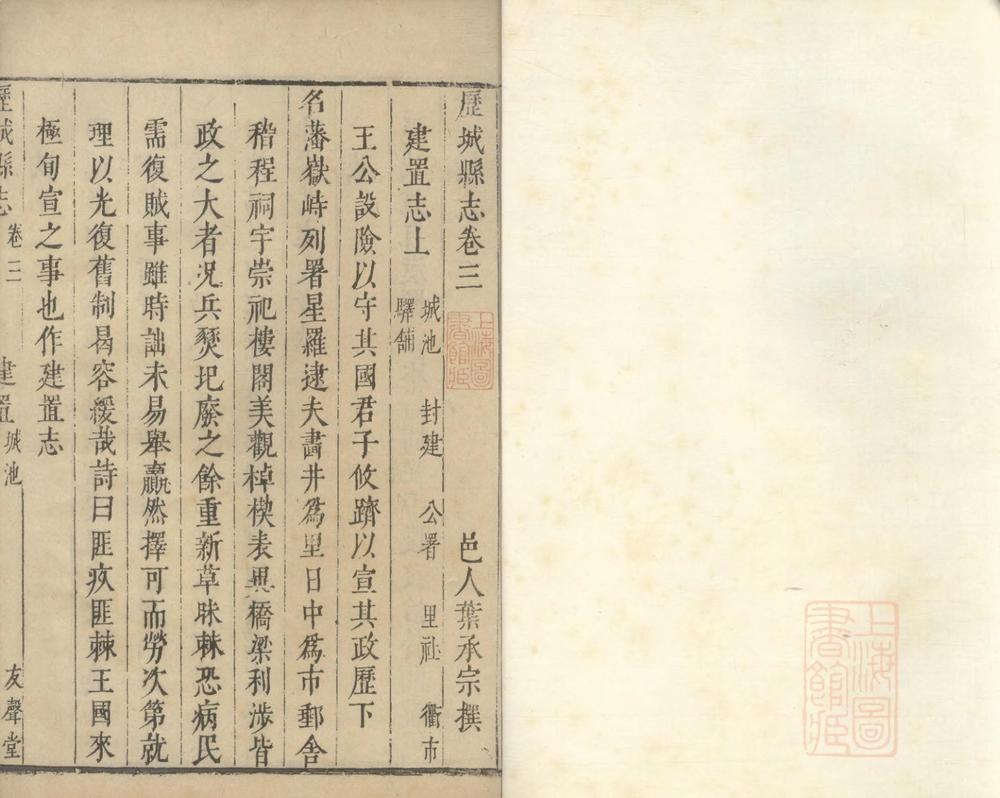 歷城縣志卷三
邑人葉承宗撰
建置志上
城池 封建 公署 里社 衢市
驛舖
王公設險以守其國君子攸躋以宣其政歷下
名藩嶽峙列署星羅逮夫畫井爲里日中爲市郵舍
稽程祠宇崇祀樓閣美觀棹楔表異橋梁利涉皆
政之大者況兵燹圯廢之餘重新草昧棘恐病民
需復賊事雖時詘未易舉羸然擇可而勞次第就
理以光復舊制曷容緩哉詩曰匪疚匪棘王國來
極旬宣之事也作建置志
歷城縣志 卷三 建置 城池 友聲堂
上海圖書館藏
上海圖書館藏